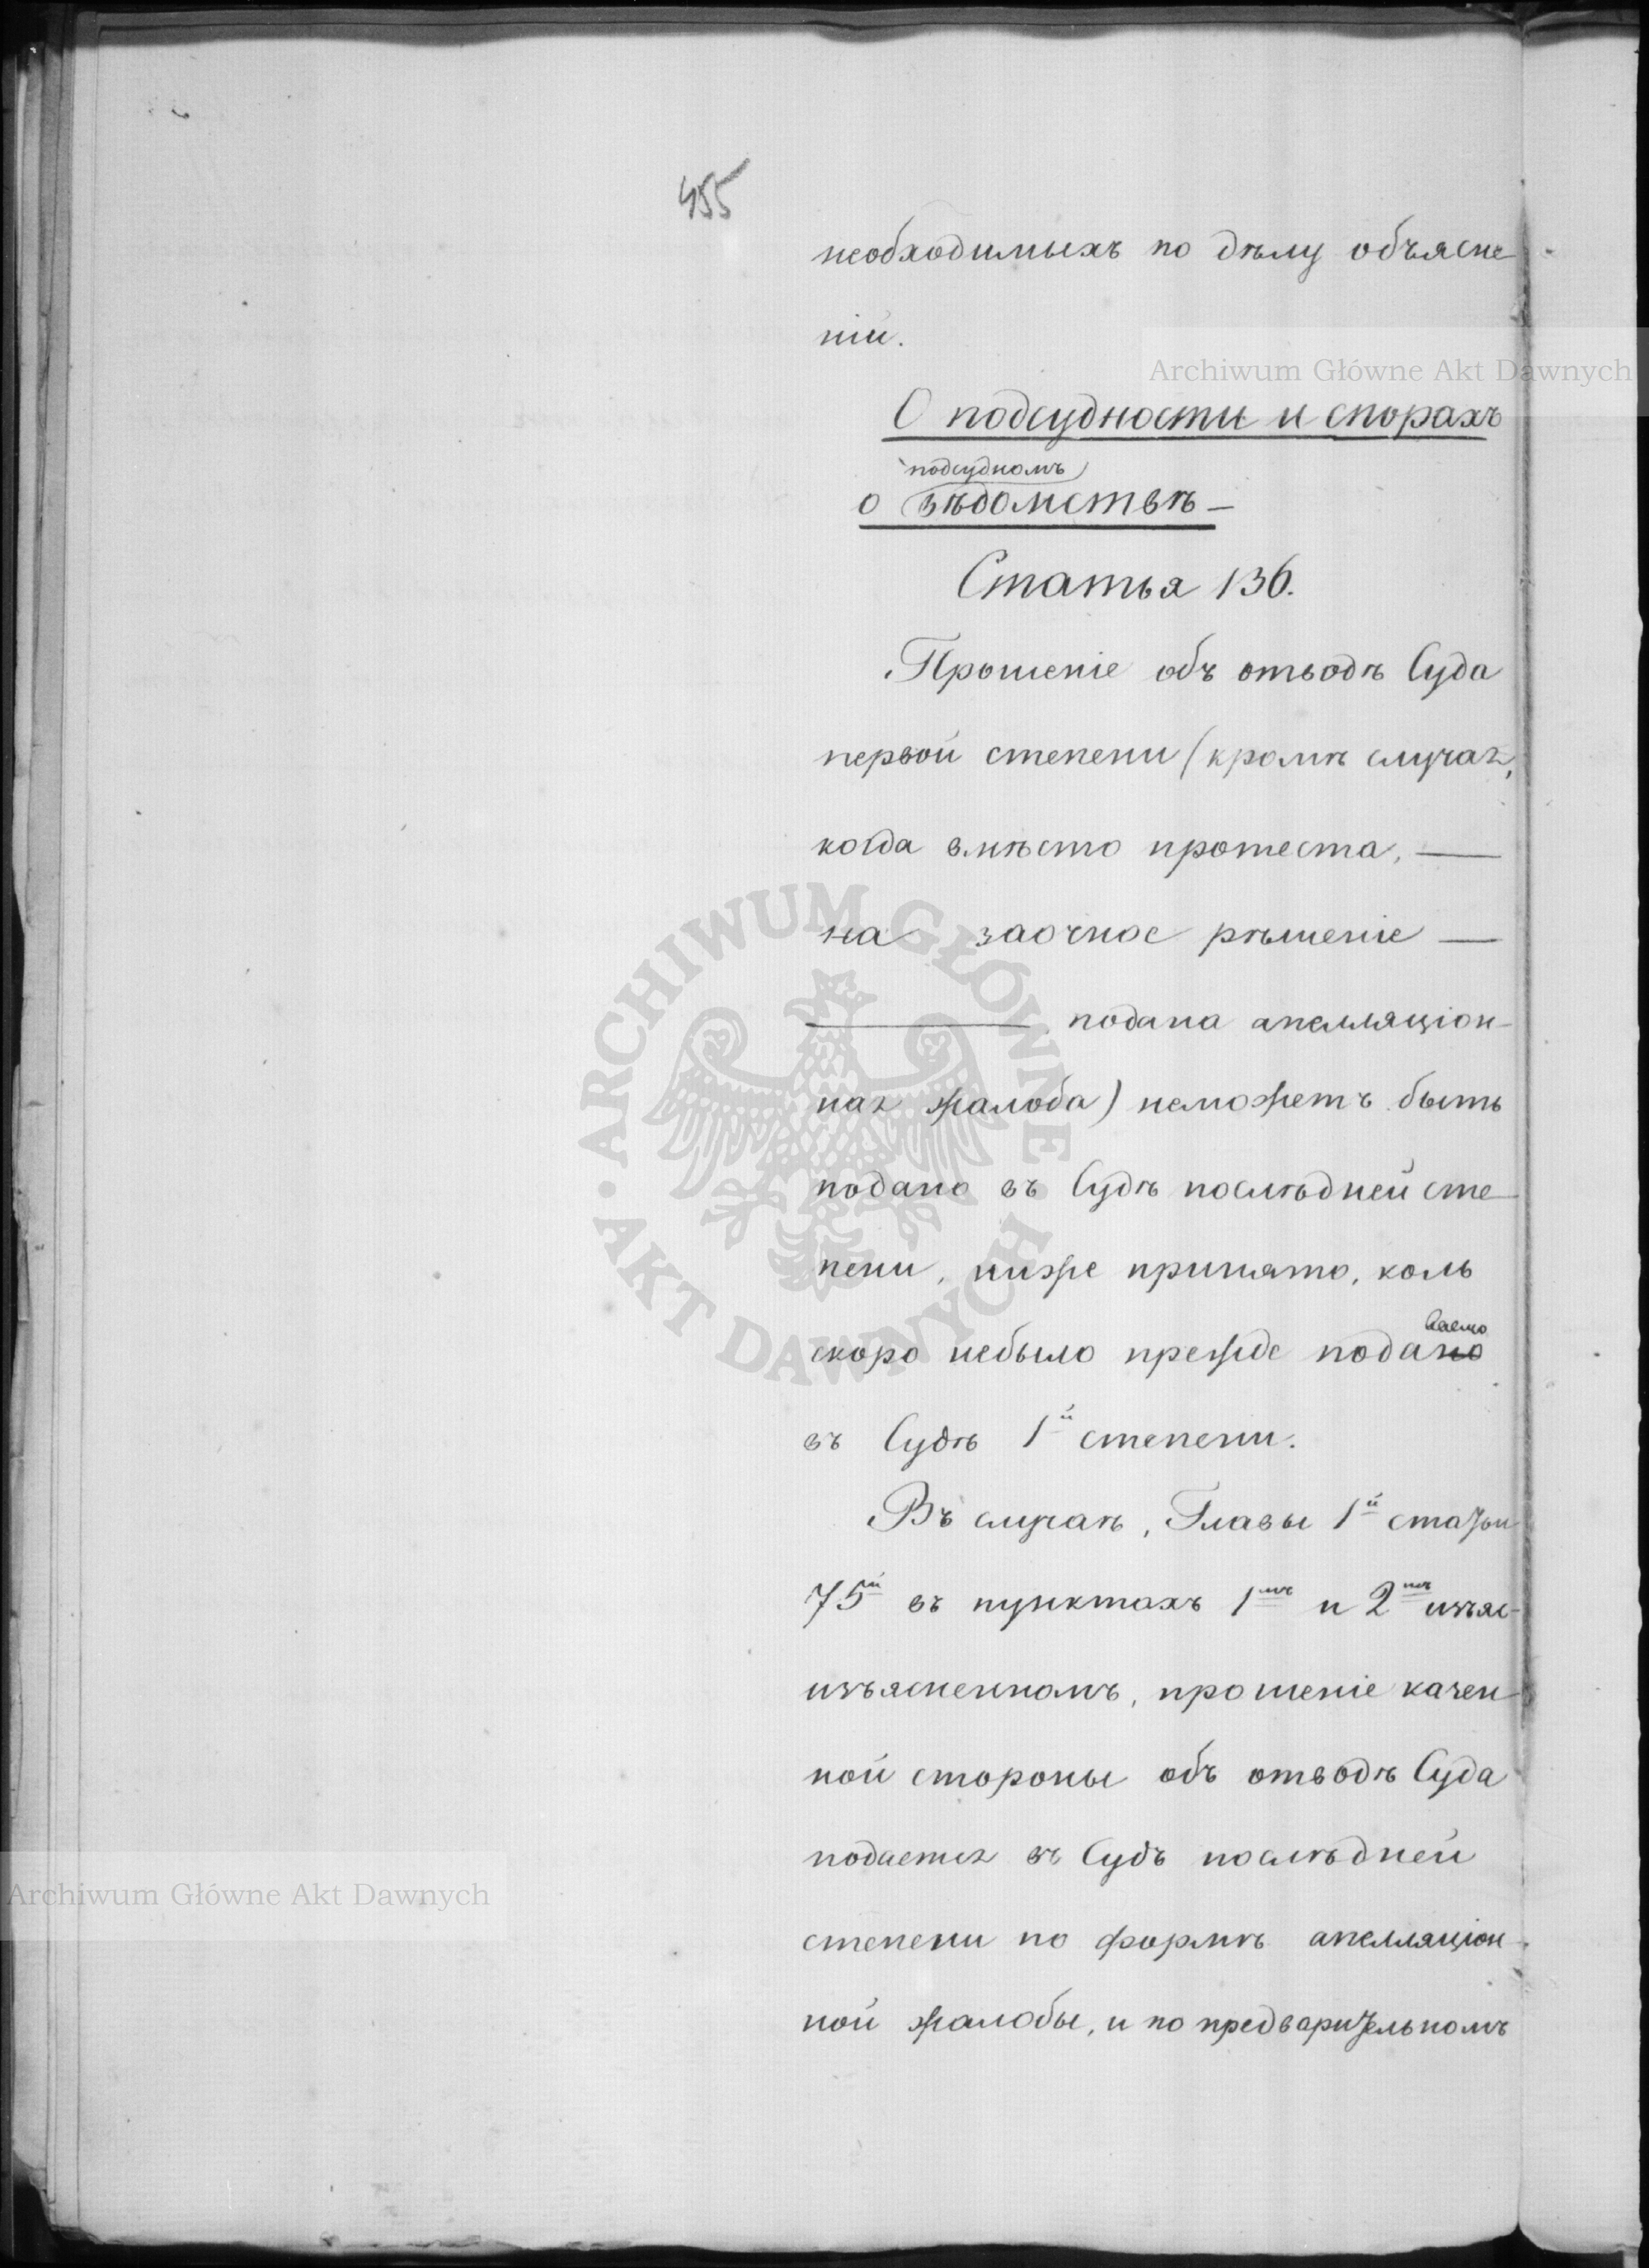 455
необходимыхъ по дѣлу объясне-
ній.
Archiwum Główne Akt Dawnych
О подсудности и спорахъ
подсудномъ
о вѣдомствѣ —
Статья 136.
Прошеніе объ отводѣ Суда
первой степени (кромѣ случая,
когда вмѣсто протеста, —
на заочное рѣшеніе —
— подана апелляціон-
ная жалоба) неможетъ быть
подано въ Судѣ послѣдней сте-
пени, ниже принято, коль
ваемо
скоро небыло прежде подано
въ Судѣ 1й степени.
Въ случаѣ, Главы 1й статьи
75й въ пунктахъ 1мъ и 2мъ изъяс-
изъясненномъ, прошеніе казен-
ной стороны объ отводѣ Суда
подается въ Судъ послѣдней
степени по формѣ апелляціон-
ной жалобы, и по предварительномъ
ARCHIWUM GŁÓWNE • AKT DAWNYCH •
Archiwum Główne Akt Dawnych